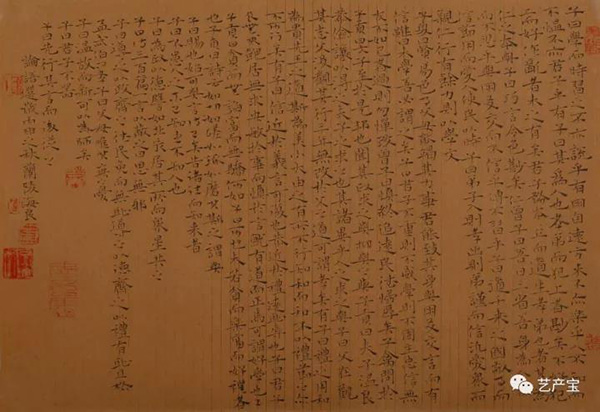 子曰學而時習之不亦說乎有朋自遠方來不亦樂乎人不知而
不慍不亦君子乎有子曰其為人也孝弟而好犯上者鮮矣不好犯上
而好作亂者未之有也君子務本本立而道生孝弟也者其為
仁之本與子曰巧言令色鮮矣仁曾子曰吾日三省吾身為人謀
而不忠乎與朋友交而不信乎傳不習乎子曰道千乘之國敬事而
信節用而愛人使民以時子曰弟子入則孝出則弟謹而信汎愛眾而
親仁行有餘力則以學文
子夏曰賢賢易色事父母能竭其力事君能致其身與朋友交言而有
信雖曰未學吾必謂之學矣子曰君子不重則不威學則不固主忠信無
友不如己者過則勿憚改曾子曰慎終追遠民德歸厚矣子禽問於
子貢曰夫子至於是邦也必聞其政求之與抑與之與子貢曰夫子溫良
恭儉讓以得之夫子之求之也其諸異乎人之求之與子曰父在觀
其志父沒觀其行三年無改於父之道可謂孝矣有子曰禮之用和
為貴先王之道斯為美小大由之有所不行知和而和不以禮節之亦
不可行也有子曰信近於義言可復也恭近於禮遠恥辱也子曰君子
食無求飽居無求安敏於事而慎於言就有道而正焉可謂好學也已
子貢曰貧而無諂富而無驕何如子曰可也未若貧而樂富而好禮者
也子貢曰詩云如切如磋如琢如磨其斯之謂與
子曰賜也始可與言詩已矣告諸往而知來者
子曰不患人之不己知患不知人也
子曰為政以德譬如北辰居其所而眾星共之
子曰詩三百一言以蔽之曰思無邪
子曰道之以政齊之以刑民免而無恥道之以德齊之以禮有恥且格
孟武伯問孝子曰父母唯其疾之憂
子曰溫故而知新可以為師矣
子曰君子不器
子曰先行其言而後從之
論語
艺产宝